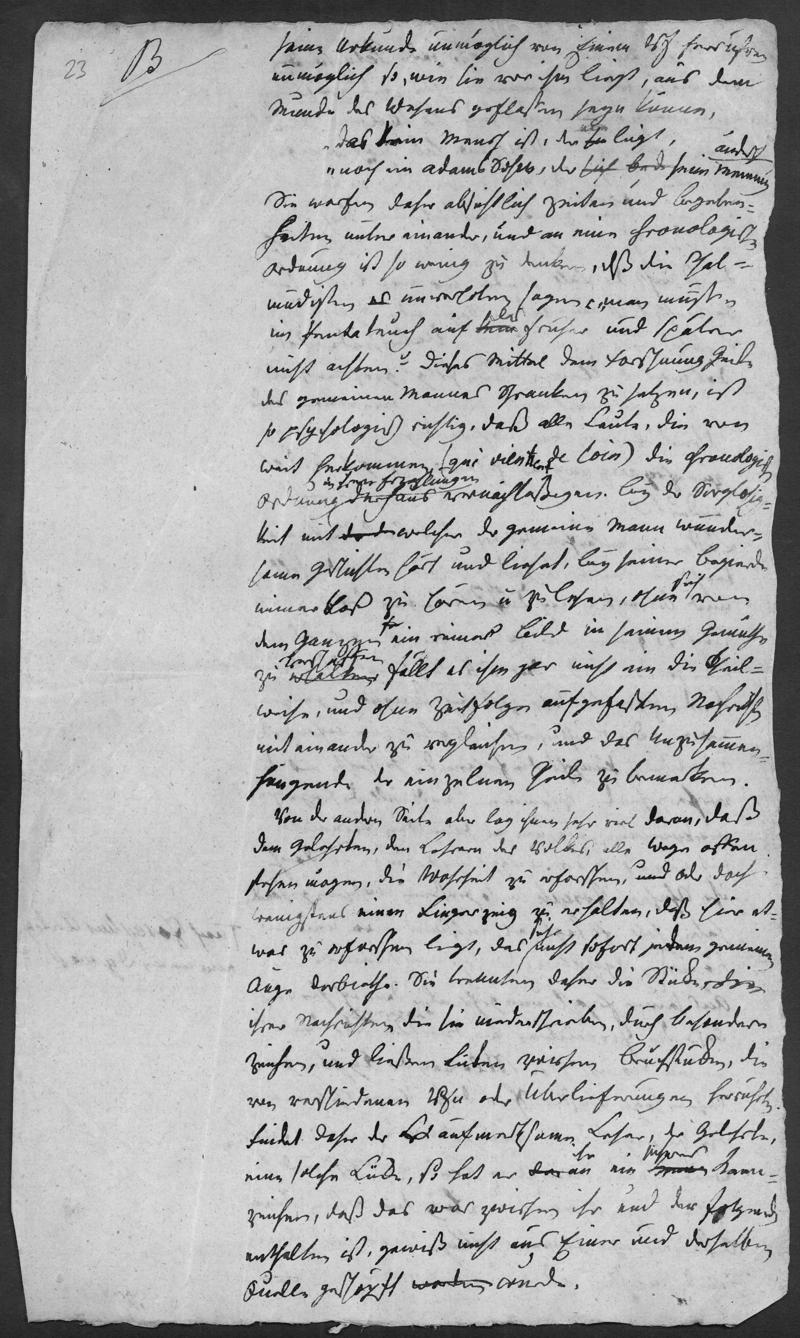 23 B
seine Urkunde unmöglich von Einem Vf herrühren
unmöglich so, wie sie vor ihm liegt, aus dem
Munde des Wesens geflossen seyn könne,
"das kein Mensch ist, der lügt,
"noch ein Adams Sohn, der sich seine Meinung ändert
Sie warfen daher absichtlich Zeiten und Begeben=
heiten unter einander, und an eine chronologische
Ordnung ist so wenig zu denken, daß die Thal=
mudisten es unverholen sagen, "man müsse
im Pentateuch auf das früher und später
nicht achten." Dieses Mittel dem Forschungsgeiste
des gemeinen Mannes Schranken zu setzen, ist
so psychologisch richtig, daß alle Leute, die von
weit herkommen, (qui viennent de loin) die chronologische
Ordnung in ihren Erzählungen vernachlässigen. Bey der Sorglosig=
keit mit welcher der gemeine Mann wunder=
same Geschichten hört und liest, bey seiner Begierde
immer bloß zu hören u zu lesen, ohne sich von
dem Ganzen ein reines Bild in seinem Gemüthe
zu verschaffen fällt es ihm gar nicht ein die theil=
weise, und ohne Zeitfolge aufgefaßten Nachrichten
mit einander zu vergleichen, und das Unzusammen=
hängende der einzelnen Theile zu bemerken.
Von der andern Seite aber lag ihnen sehr viel daran, daß
dem Gelehrten, den Lehrern des Volkes, alle Wege offen
stehen mögen, die Wahrheit zu erforschen, und oder doch
wenigstens einen Fingerzeig zu erhalten, daß hier et=
was zu erforschen liegt, das sich nicht sofort jedem gemeinen
Auge darbiethe. Sie trennten daher die Stücke
ihrer Nachrichten die sie niederschrieben, durch besondere
Zeichen, und ließen Lücken zwischen Bruchstücken, die
von verschiedenen Vfn oder Überlieferungen herrührten.
Findet daher der aufmerksame Leser, der Gelehrte,
eine solche Lücke, so hat er an ihr ein sicheres Kenn=
zeichen, daß das was zwischen ihr und der folgenden
enthalten ist, gewiß nicht aus Einer und derselben
Quelle geschöpft wurde.